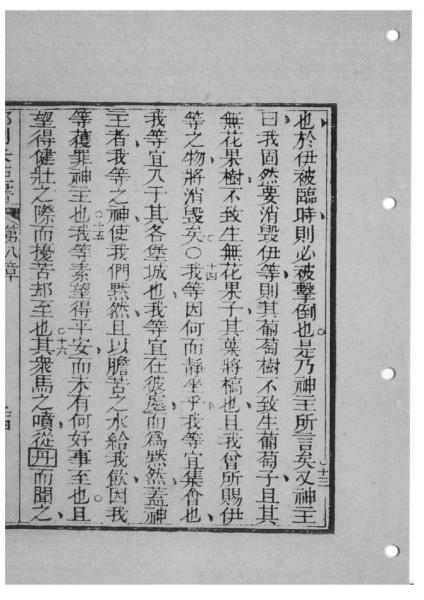 也於伊被臨時則必被擊倒也是乃神主所言矣又神主
十三
曰我固然要消毀伊等則其葡萄樹不致生葡萄子且其
無花果樹不致生無花果子其葉將槁也且我曾所賜伊
等之物將消毀矣○我等因何而靜坐乎我等宜集會也
十四
我等宜入于其各堡城也我等宜在彼處而為默然蓋神
主者我等之神使我們默然且以膽苦之水給我飲因我
等獲罪神主也我等素望得平安而未有何好事至也且
十五
望得健壯之際而擾苦却至也其衆馬之噴從丹而聞之
十六
第八章